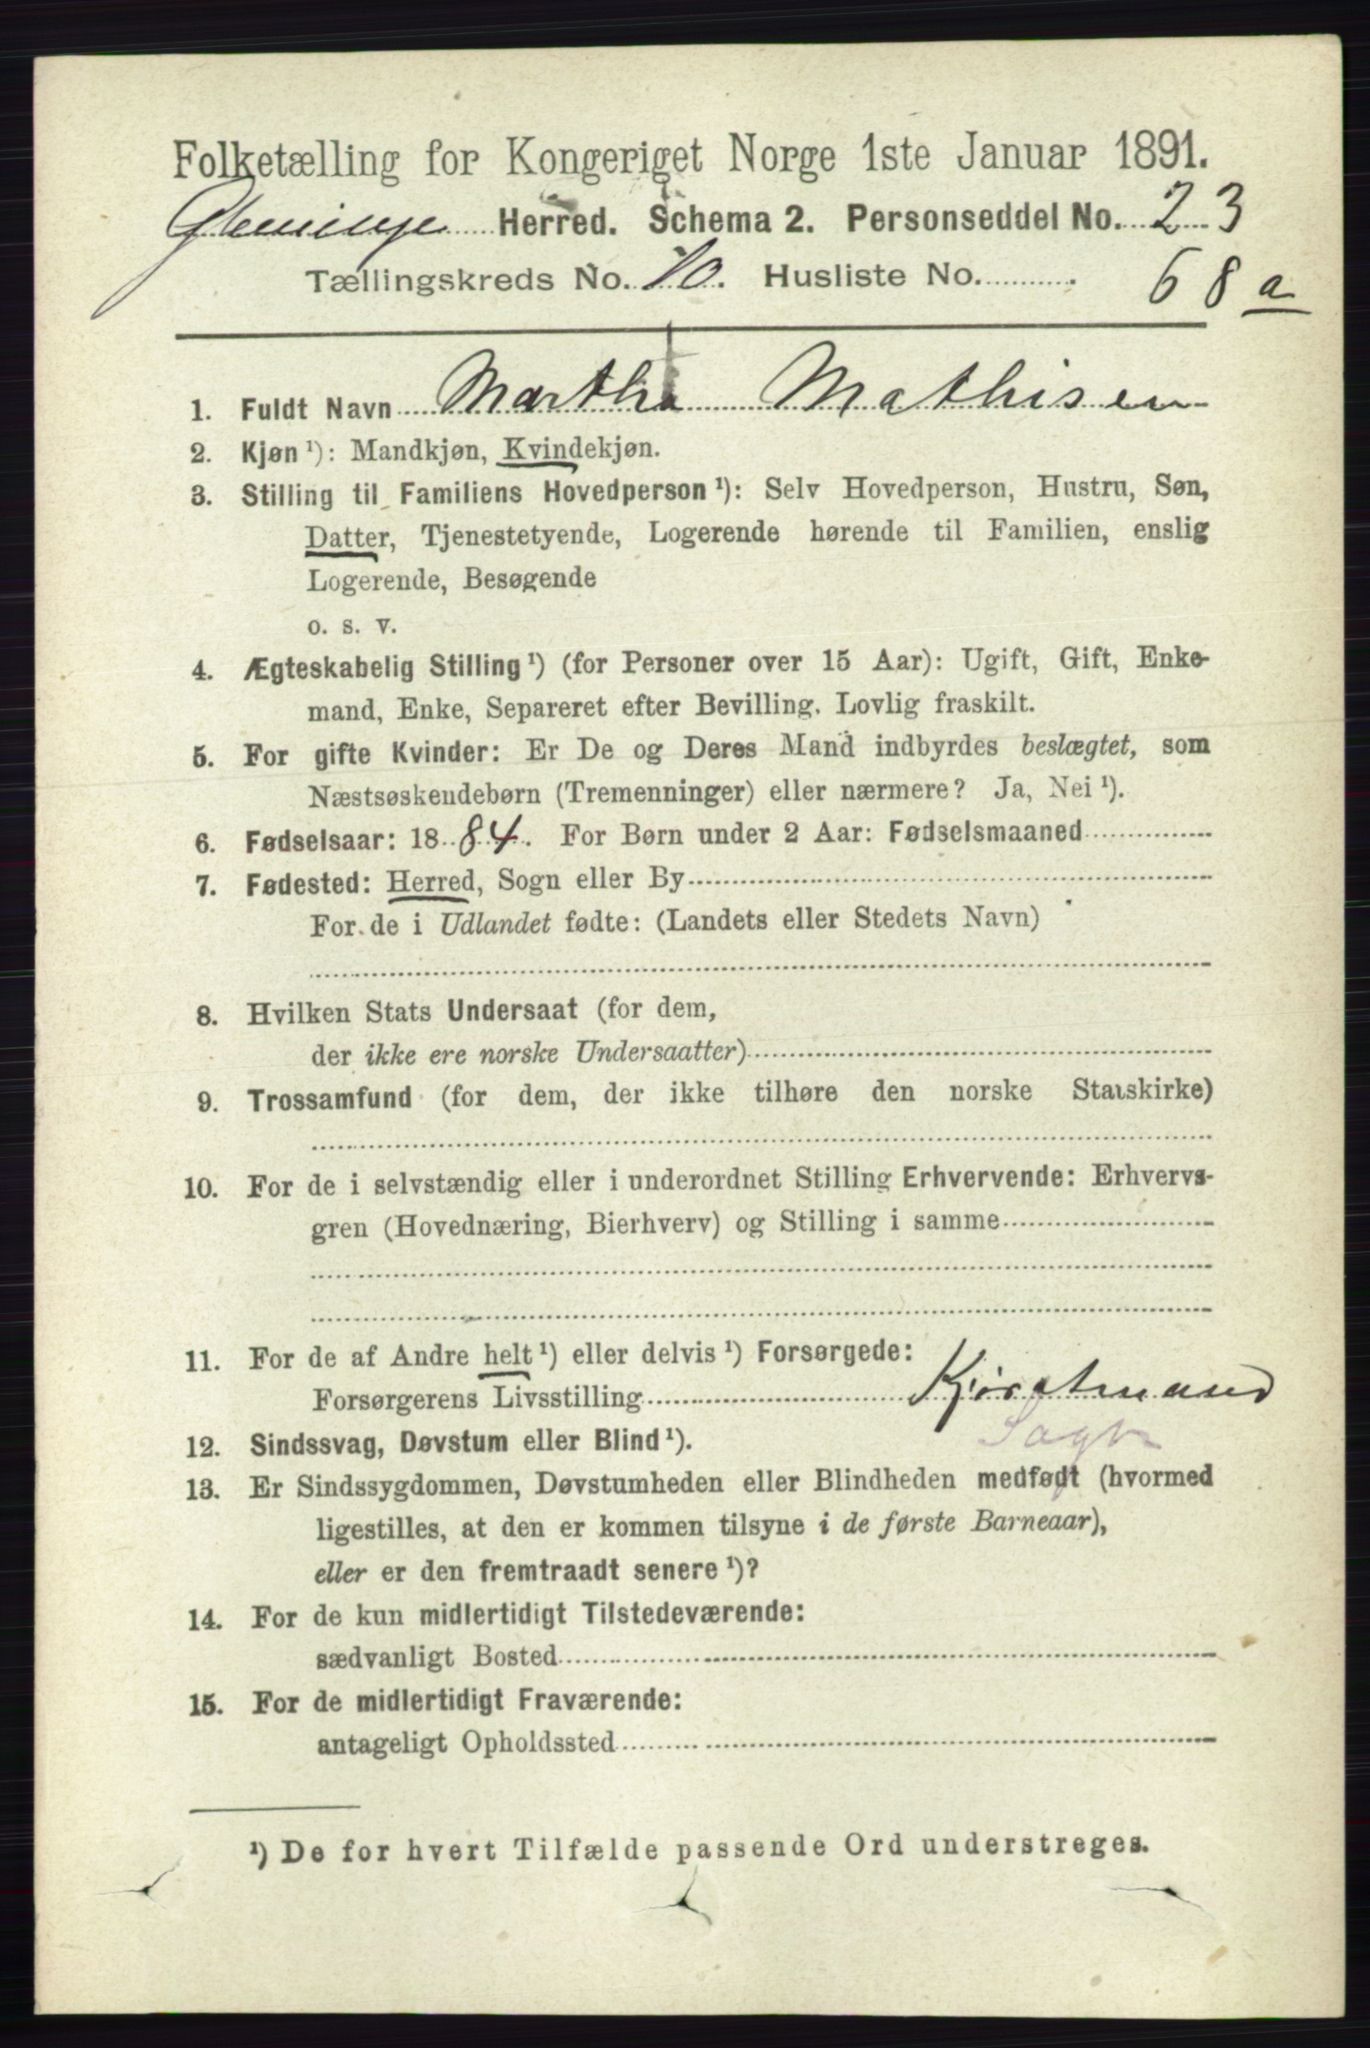 Folketælling for Kongeriget Norge 1ste Januar 1891.
Glemminge Herred. Schema 2. Personseddel No. 23
Tællingskreds No. 10. Husliste No. 68 a
1. Fuldt Navn Martha Mathisen
2. Kjøn ¹): Mandkjøn, Kvindekjøn.
3. Stilling til Familiens Hovedperson ¹): Selv Hovedperson, Hustru, Søn,
Datter, Tjenestetyende, Logerende hørende til Familien, enslig
Logerende, Besøgende
o. s. v.
4. Ægteskabelig Stilling ¹) (for Personer over 15 Aar): Ugift, Gift, Enke-
mand, Enke, Separeret efter Bevilling. Lovlig fraskilt.
5. For gifte Kvinder: Er De og Deres Mand indbyrdes beslægtet, som
Næstsøskendebørn (Tremenninger) eller nærmere? Ja, Nei ¹).
6. Fødselsaar: 1884. For Børn under 2 Aar: Fødselsmaaned
7. Fødested: Herred, Sogn eller By
For de i Udlandet fødte: (Landets eller Stedets Navn)
8. Hvilken Stats Undersaat (for dem,
der ikke ere norske Undersaatter)
9. Trossamfund (for dem, der ikke tilhøre den norske Statskirke)
10. For de i selvstændig eller i underordnet Stilling Erhvervende: Erhvervs-
gren (Hovednæring, Bierhverv) og Stilling i samme
11. For de af Andre helt ¹) eller delvis ¹) Forsørgede:
Forsørgerens Livsstilling Kjøratmand
12. Sindssvag, Døvstum eller Blind ¹).
13. Er Sindssygdommen, Døvstumheden eller Blindheden medfødt (hvormed
ligestilles, at den er kommen tilsyne i de første Barneaar),
eller er den fremtraadt senere ¹)?
14. For de kun midlertidigt Tilstedeværende:
sædvanligt Bosted
15. For de midlertidigt Fraværende:
antageligt Opholdssted
¹) De for hvert Tilfælde passende Ord understreges.